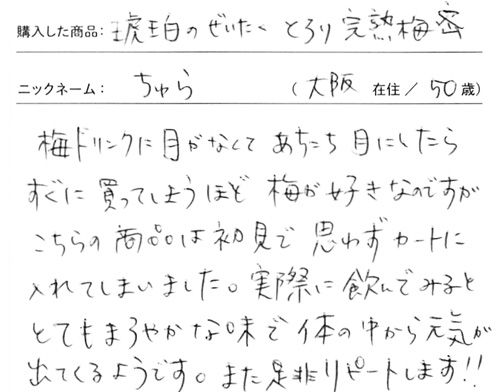 購入した商品: 琥珀のぜいたく とろり完熟梅密
ニックネーム: ちゅら (大阪 在住/50歳)
梅ドリンクに目がなくて あちこち 目にしたら
すぐに 買ってしまうほど 梅が好きなのですが
こちらの商品は初見で 思わずカートに
入れてしまいました。実際に飲んでみると
とてもまろやかな味で体の中から元気が
出てくるようです。また是非リピートします!!